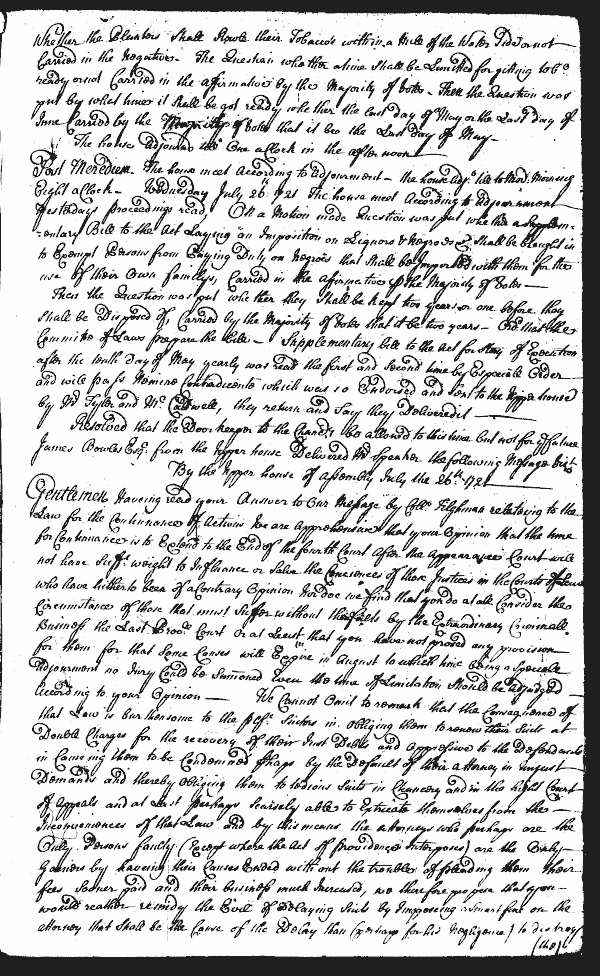 Whether the Planters Shall Rowle their Tobaccos within a Mile of the Water Side or not
Carried in the Negative. The Question whether a time Shall be Limitted for getting tob:o
ready or not Carried in the affirmative by the Majority of Votes. Then the Question was
put by what time it Shall be got ready whether the last day of May or the Last day of
June Carried by the Majority of Votes that it be the Last Day of May.
The house Adjourn'd till One a Clock in the afternoon
Post Meridiem. The house met According to Adjournment. the house Adj:d till to Mor: Morning
Eight a Clock. Wednesday July 26. 1721 The house met According to Adjournment
Yesterdays proceedings read. On a Motion made Question was put whether a Supplem-
-entary Bill to the Act Laying an Imposition on Liquors & Negroes &c. Shall be brought in
to Exempt Persons from Paying Duty on Negroes that Shall be Imported with them for the
use of their Own familys, Carried in the affirmative by the Majority of Votes
Then the Question was put whether they Shall be kept two years or one before they
Shall be Disposed of, Carried by the Majority of Votes that it be two years. that the
Committe of Laws prepare the bill. Supplementary bill to the Act for Stay of Execution
after the tenth day of May yearly was read the first and Second time by Especial Order
and will pass Nemine Contradicente which was so Endorsed and Sent to the Upper house
by Mr Tyler and Mr Caldwell, they return and Say they Delivered it
Resolved that the Door keeper to the be allowed to this time but not for future
James Bowles Esq:r from the Upper house Delivered Mr Speaker the following Message viz:t
By the Upper house of Assembly July the 26:th 1721
Gentlemen Having read your Answer to Our Message by Coll:o Tilghman relateing to the
Law for the Continuance of Actions We are Apprehensive that your Opinion that the time
for Continuance is to Extend to the End of the fourth Court after the Appearance Court will
not have Suff:t weight to Influence or Salve the Consciences of those Justices in the Courts of Law
who have hitherto been of a Contrary Opinion Nor doe we find that you do at all Consider the
Circumstance of those that must Suffer without their faults by the Extraordinary Criminall
Business the Last Prov:ll Court Or at Least that you have not proposed any provision
for them for that Some Causes will Expire in August to which time being a Speciale
Adjournment no Jury Could be Sumoned Even the time of Limitation Should be Adjudged
According to your Opinion We Cannot Omit to remark that the Consequence of
that Law is burthensome to the Suitors in obliging them to renew their Suits at
Double Charges for the recovery of their Just Debts and Oppressive to the Defendants
in Causing them to be Condemned by the Default of their attorney in unjust
Demands and thereby obliging them to tedious Suits in Chancery and in this hight Court
of Appeals and at Last perhaps Scarcely able to Extricate themselves from the
Inconveniences of that Law and by this means the attorneys who perhaps are the
Only Persons faulty (Except where the Act of Providence Interposes) are the Only
Gainers by having their Causes Ended without the trouble of pleading them their
fees Sooner paid and their business much Increased, we therefore propose that you
would reather remidy the Evil of Delaying Suits by Imposing a Smart fine on the
Attorney that Shall be the Cause of the Delay than (perhaps for his Negligence) to distroy
(the)